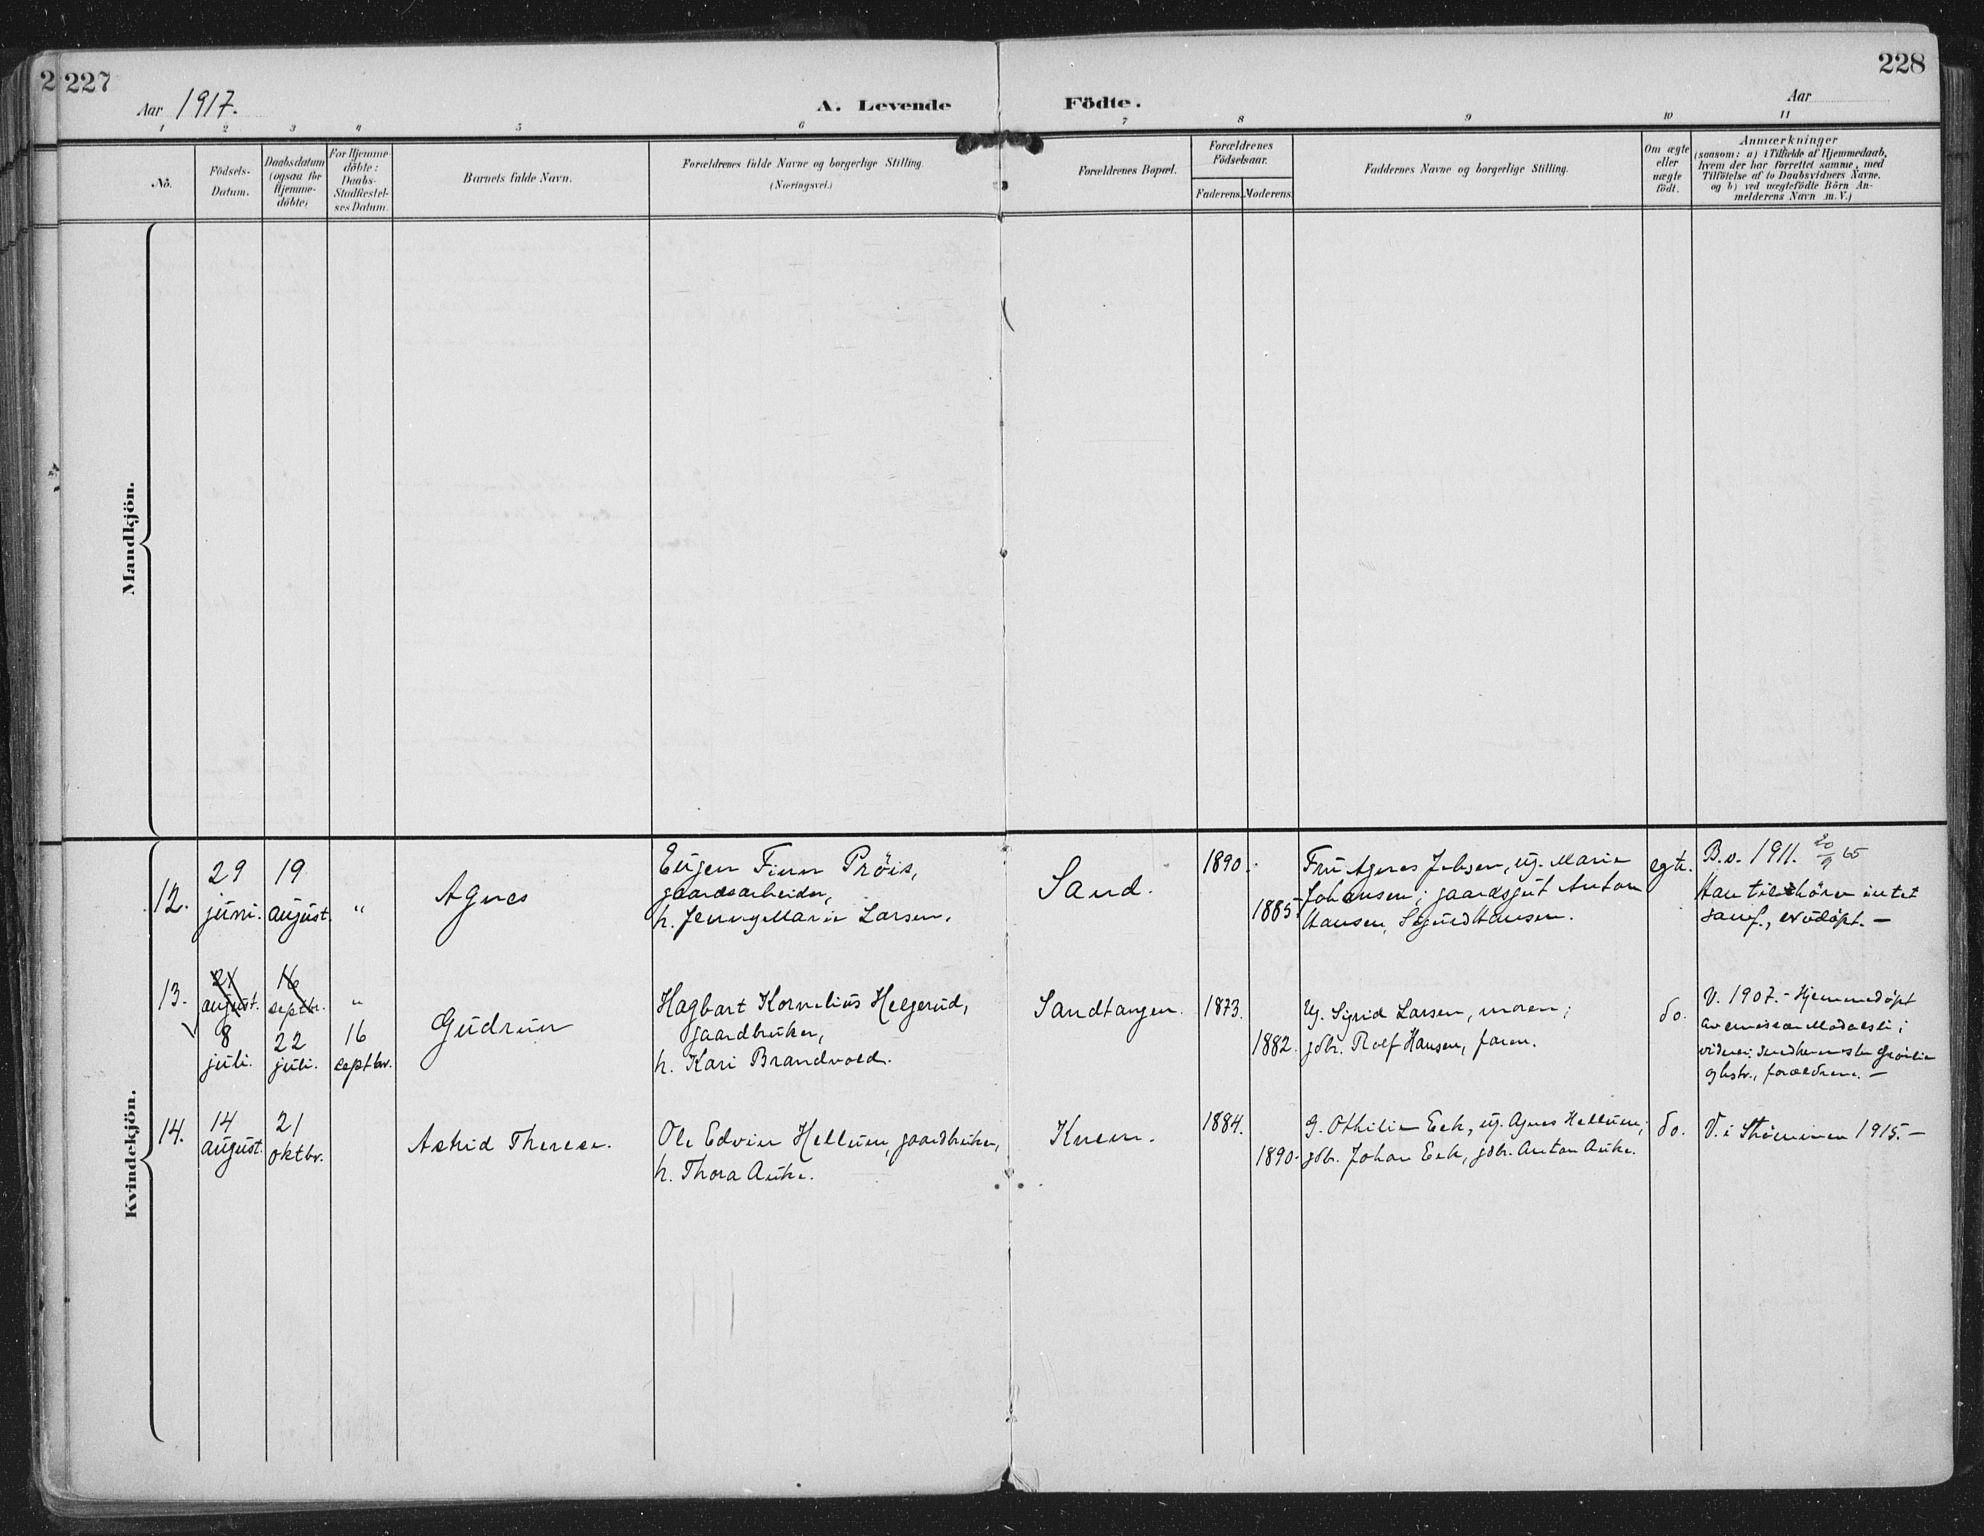 2 227
228
Aar 1917.
A. Levende Födte.
Aar
1 2 3 4 5 6 7 8 9 10 11
No.
Födsels-
Datum.
Daabsdatum
(ogsaa for
Hjemme-
döbte)
For Hjemme-
döbte:
Daabs-
Stadfæstel-
ses Datum.
Barnets fulde Navn.
Forældrenes fulde Navne og borgerlige Stilling
(Næringsvei.)
Forældrenes Bopæl.
Forældrenes
Födselsaar.
Faderens.
Moderens.
Faddernes Navne og borgerlige Stilling.
Om ægte
eller
uægte
födt.
Anmærkninger
(saasom: a) i Tilfælde af Hjemmedaab,
hvem der har forrettet samme, med
Tilföielse af to Daabsvidners Navne,
og b) ved uægtefödte Börn An-
melderens Navn m. V.)
Mandkjön.
Kvindekjön.
12.
29
juni.
19
august.
"
Agnes
Eugen Finn Pröis,
gaardsarbeider,
h. Jenny Marie Larsen.
Sand.
1890.
1885.
Fru Agnes Jebsen, ug. Marie
Johansen; gaardsgut Anton
Hansen, Sigurd Hansen.
egte.
B.v. 1911. 20/9 65
Han tilhörer intet
samf., er udöpt. —
13.
21
august.
16
septbr.
"
8
juli.
22
juli.
16
septbr.
Gudrun
Hagbart Kornelius Helgerud,
gaardbruker,
h. Kari Brandvold.
Sandtangen.
1873.
1882.
Ug. Sigrid Larsen, moren;
gdbr. Rolf Hansen, faren.
do.
V. 1907. - Hjemmedöpt
av
forældrene. —
14.
14
august.
21
oktbr.
Astrid Therese.
Ole Edvin Hellum, gaardbruker,
h. Thora Auke.
Knem.
1884.
1890.
G. Othilie Eek, ug. Agnes Hellum;
gdbr. Johan Eek, gdbr. Anton Auke.
do.
V. i Strömmen 1915. —